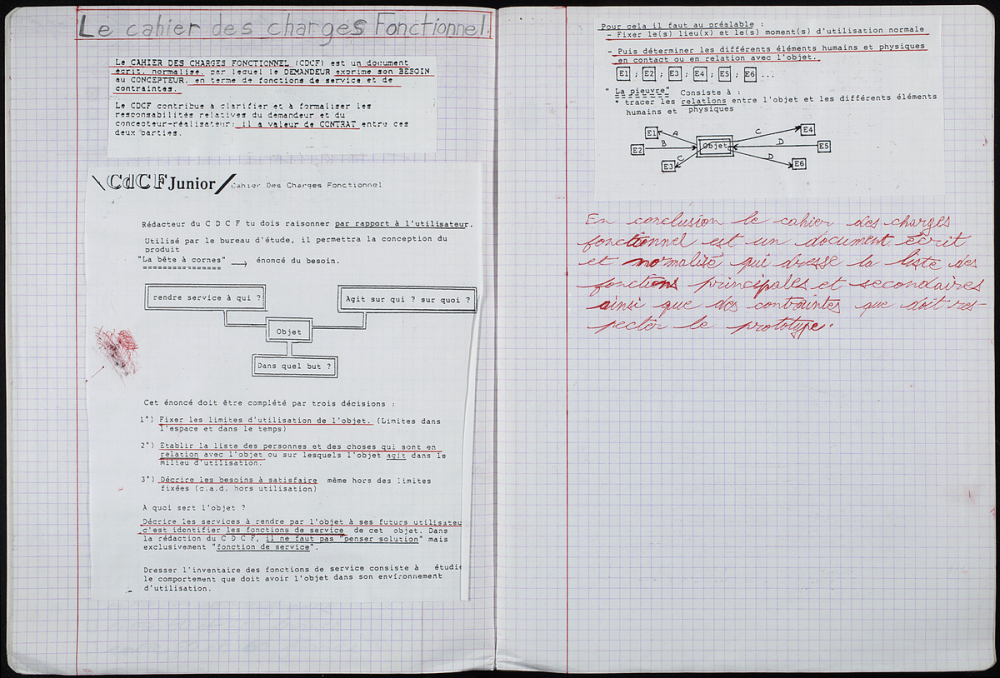 Le cahier des charges Fonctionnel.
Le CAHIER DES CHARGES FONCTIONNEL (CDCF) est un document
écrit, normalisé, par lequel le DEMANDEUR exprime son BESOIN
au CONCEPTEUR, en terme de fonctions de service et de
contraintes.
Le CDCF contribue à clarifier et à formaliser les
responsabilités relatives du demandeur et du
concepteur-réalisateur; il a valeur de CONTRAT entre ces
deux parties.
CdCF Junior Cahier Des Charges Fonctionnel
Rédacteur du C D C F tu dois raisonner par rapport à l'utilisateur.
Utilisé par le bureau d'étude, il permettra la conception du
produit
"La bête à cornes" → énoncé du besoin.
rendre service à qui ?
Agit sur qui ? sur quoi ?
Objet
Dans quel but ?
Cet énoncé doit être complété par trois décisions :
1°) Fixer les limites d'utilisation de l'objet. (Limites dans
l'espace et dans le temps)
2°) Etablir la liste des personnes et des choses qui sont en
relation avec l'objet ou sur lesquels l'objet agit dans le
milieu d'utilisation.
3°) Décrire les besoins à satisfaire même hors des limites
fixées (c.a.d. hors utilisation)
A quoi sert l'objet ?
Décrire les services à rendre par l'objet à ses futurs utilisateu
c'est identifier les fonctions de service de cet objet. Dans
la rédaction du C D C F, il ne faut pas "penser solution" mais
exclusivement "fonction de service".
Dresser l'inventaire des fonctions de service consiste à étudie
le comportement que doit avoir l'objet dans son environnement
d'utilisation.
Pour cela il faut au préalable :
- Fixer le(s) lieu(x) et le(s) moment(s) d'utilisation normale
- Puis déterminer les différents éléments humains et physiques
en contact ou en relation avec l'objet.
E1 ; E2 ; E3 ; E4 ; E5 ; E6 ...
" La pieuvre" Consiste à :
* tracer les relations entre l'objet et les différents éléments
humains et physiques
E1 A C E4
E2 B Objet D E5
E3 C D E6
En conclusion le cahier des charges
fonctionnel est un document écrit
et normalisé qui dresse la liste des
fonctions principales et secondaires
ainsi que des contraintes que doit res-
pecter le prototype.